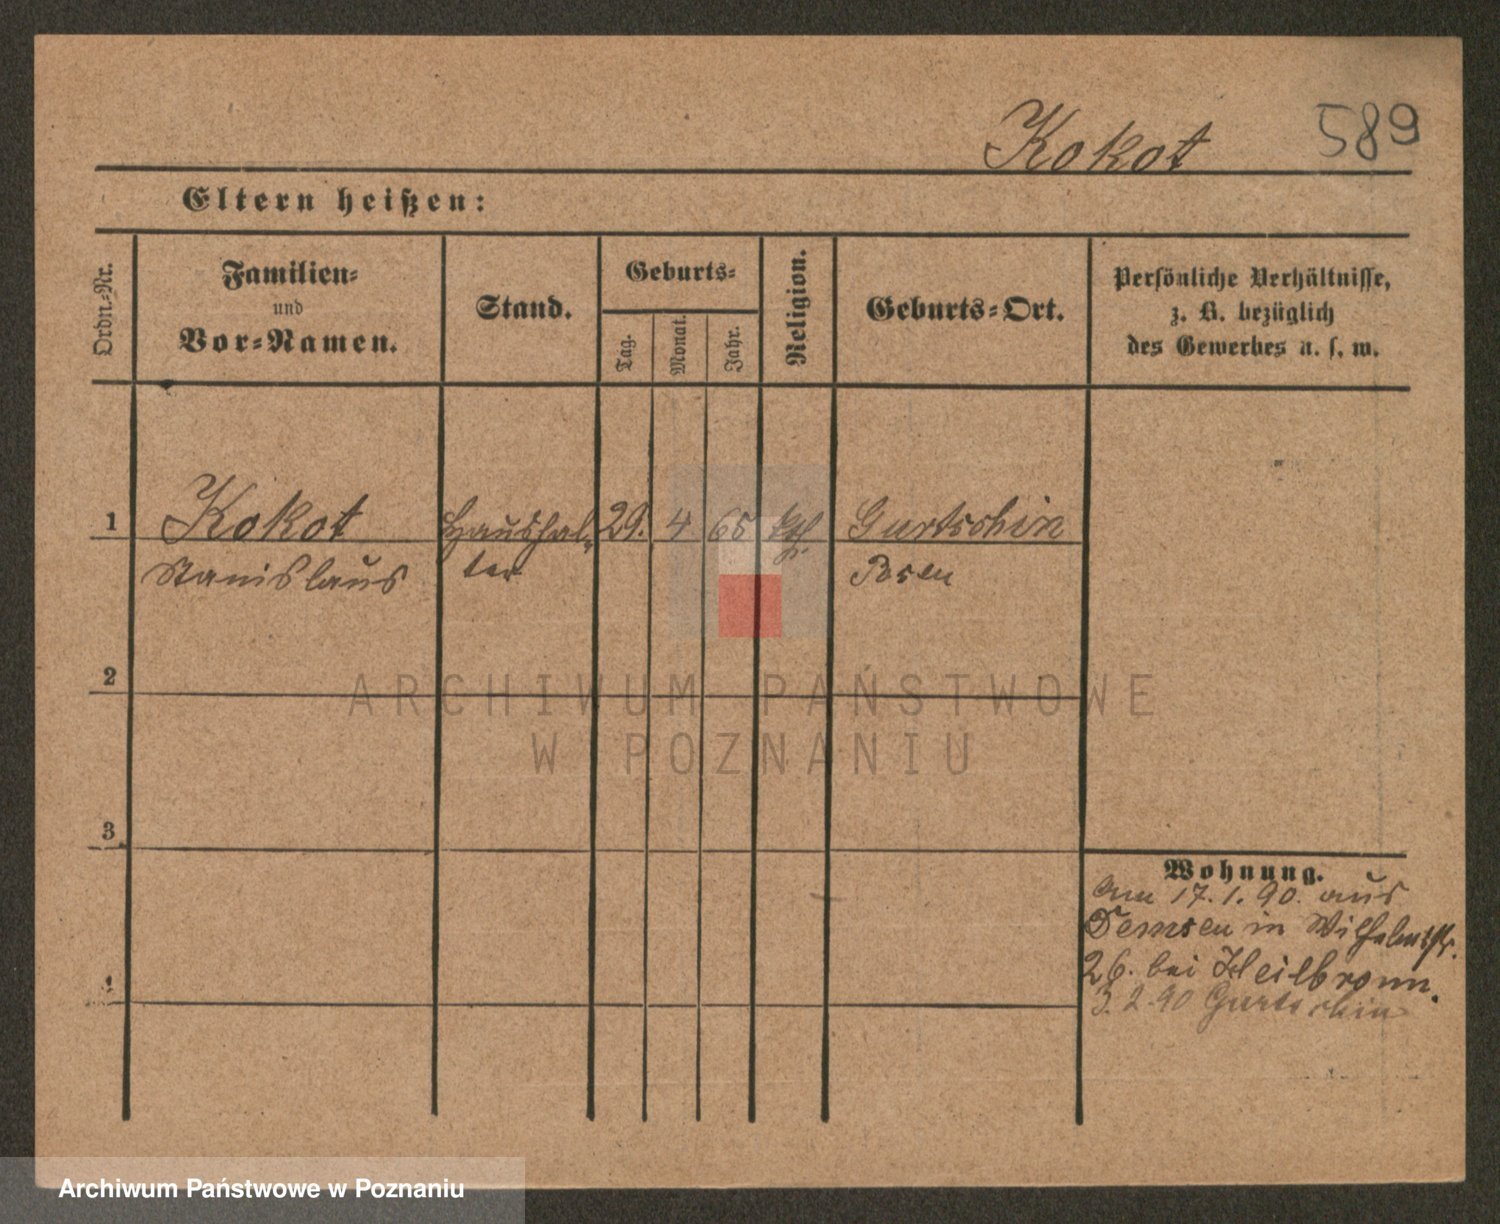 Kokot 589
Eltern heißen:
Ordn.-Nr.
Familien-
und
Vor-Namen.
Stand.
Geburts-
Tag.
Monat.
Jahr.
Religion.
Geburts-Ort.
Persönliche Verhältnisse,
z. B. bezüglich
des Gewerbes u. s. w.
1 Kokot Haushal- 29. 4 65 kth. Gurtschin
Stanislaus ter Posen
2
3
4
Wohnung.
Am 17.1.90. aus
Demsen in Wilhelmstr.
26. bei Heilbronn.
3.2.90 Gurtschin
ARCHIWUM PAŃSTWOWE
W POZNANIU
Archiwum Państwowe w Poznaniu